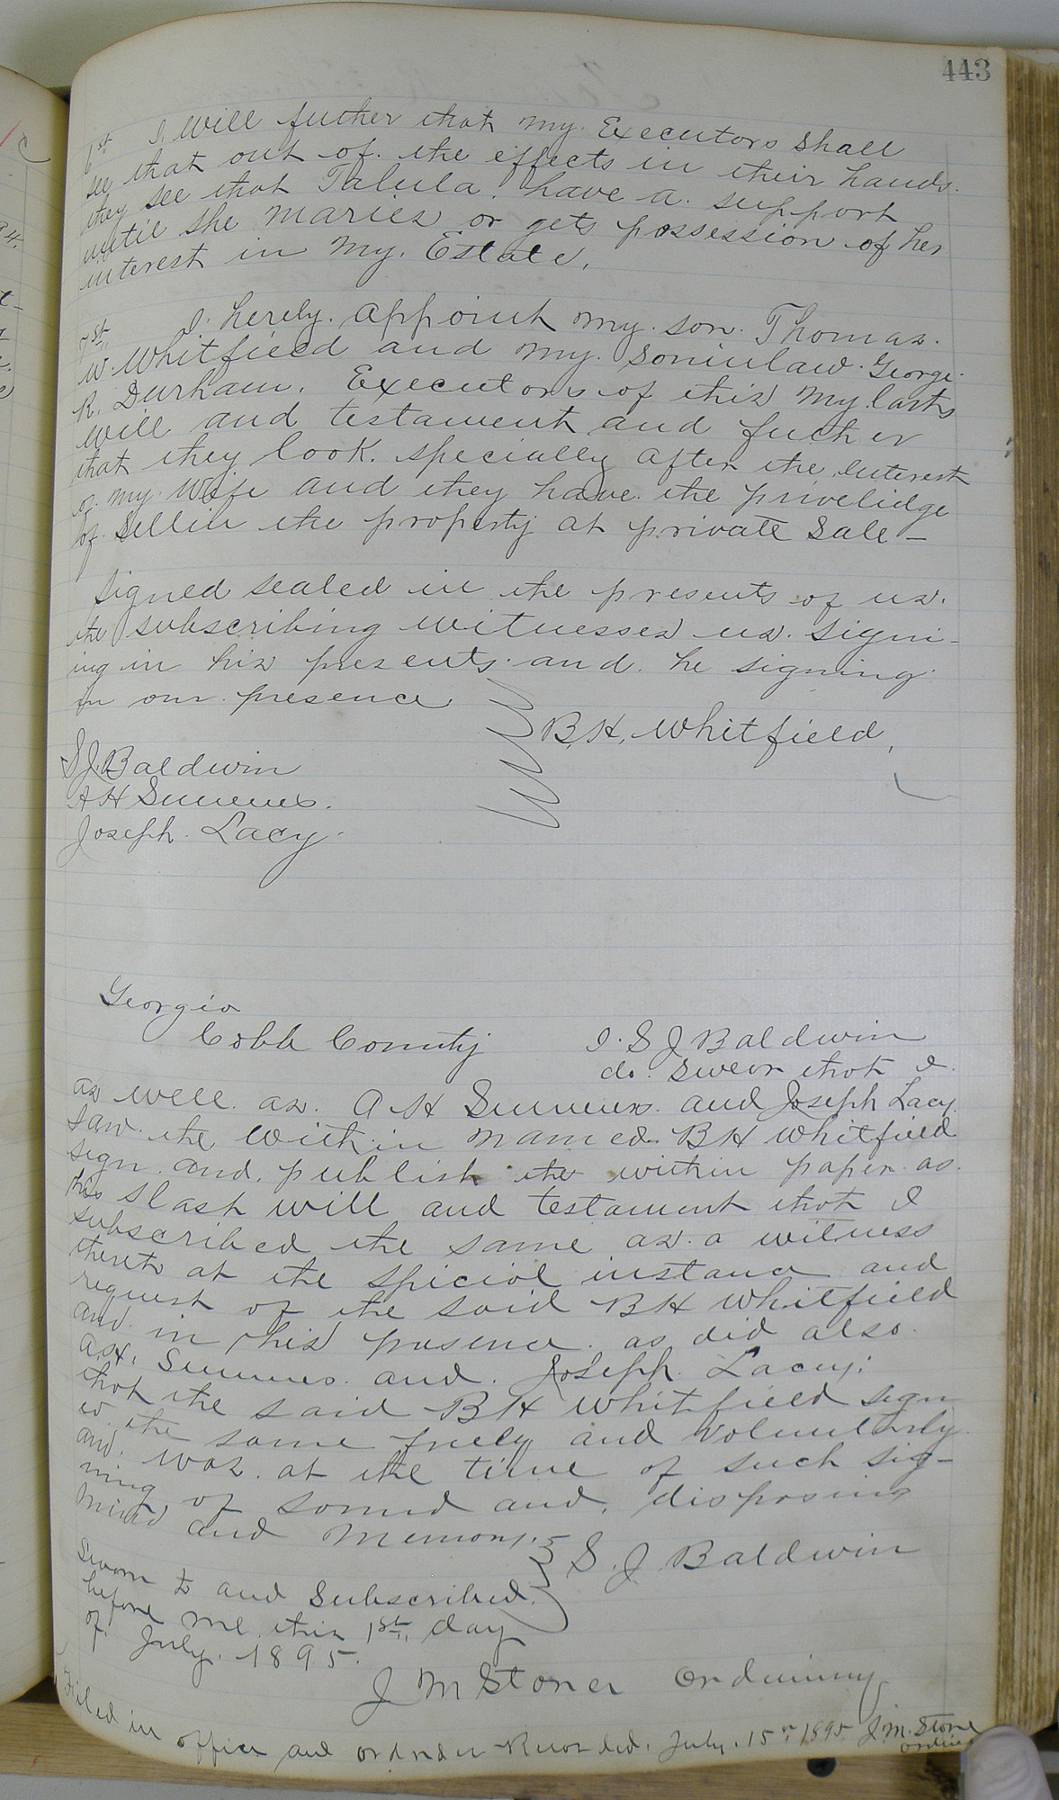 443
6st I, Will futher that my Executors Shall
see that out of the effects in their hands.
they see that Talula. have a. support
until she maries or gets possession of her
interest in my. Estate.
7st I. hereby. appoint my. son. Thomas.
W. Whitfield and my. soninlaw. George.
R. Durham. Executors of this my last
will and testament and futher
that they look. specially after the interest
of my. Wife and they have the privelidge
of Sellin the property at private Sale -
Signed sealed in the presents of us.
the subscribing witnesses us. signi-
ing in his presents. and. he signing
in our presence
B. H. Whitfield.
S. J. Baldwin
A H Summers.
Joseph. Lacy.
Georgia
Cobb County
I. S J Baldwin
do. swear that I.
as well. as. A H Summers. and Joseph Lacy.
saw the within named. B H Whitfield
sign. and. publish the within paper as.
his last will and testament that I
subscribed the same as. a witness
thereto at the special instance and
request of the said B H Whitfield
and in his presence. as did also.
A. H. Summers. and. Joseph Lacy:
that the said B H Whitfield sign
ed. the same freely and voluntarly
and. was. at the time of such sig-
ning of sound and. disposing
mind and memory.
S. J. Baldwin
Sworn to and Subscribed.
before me. this 1st. day
of. July. 1895.
J M Stone Ordinary
Filed in office and Recorded. July. 15th 1895 J. M. Stone